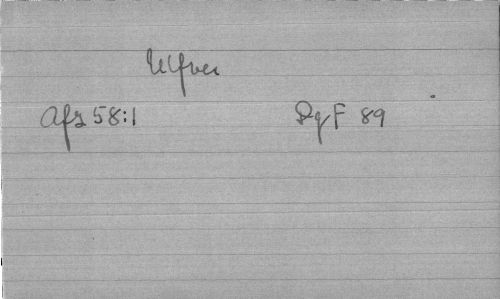 Ulfver
Afz 58:1 DgF 89